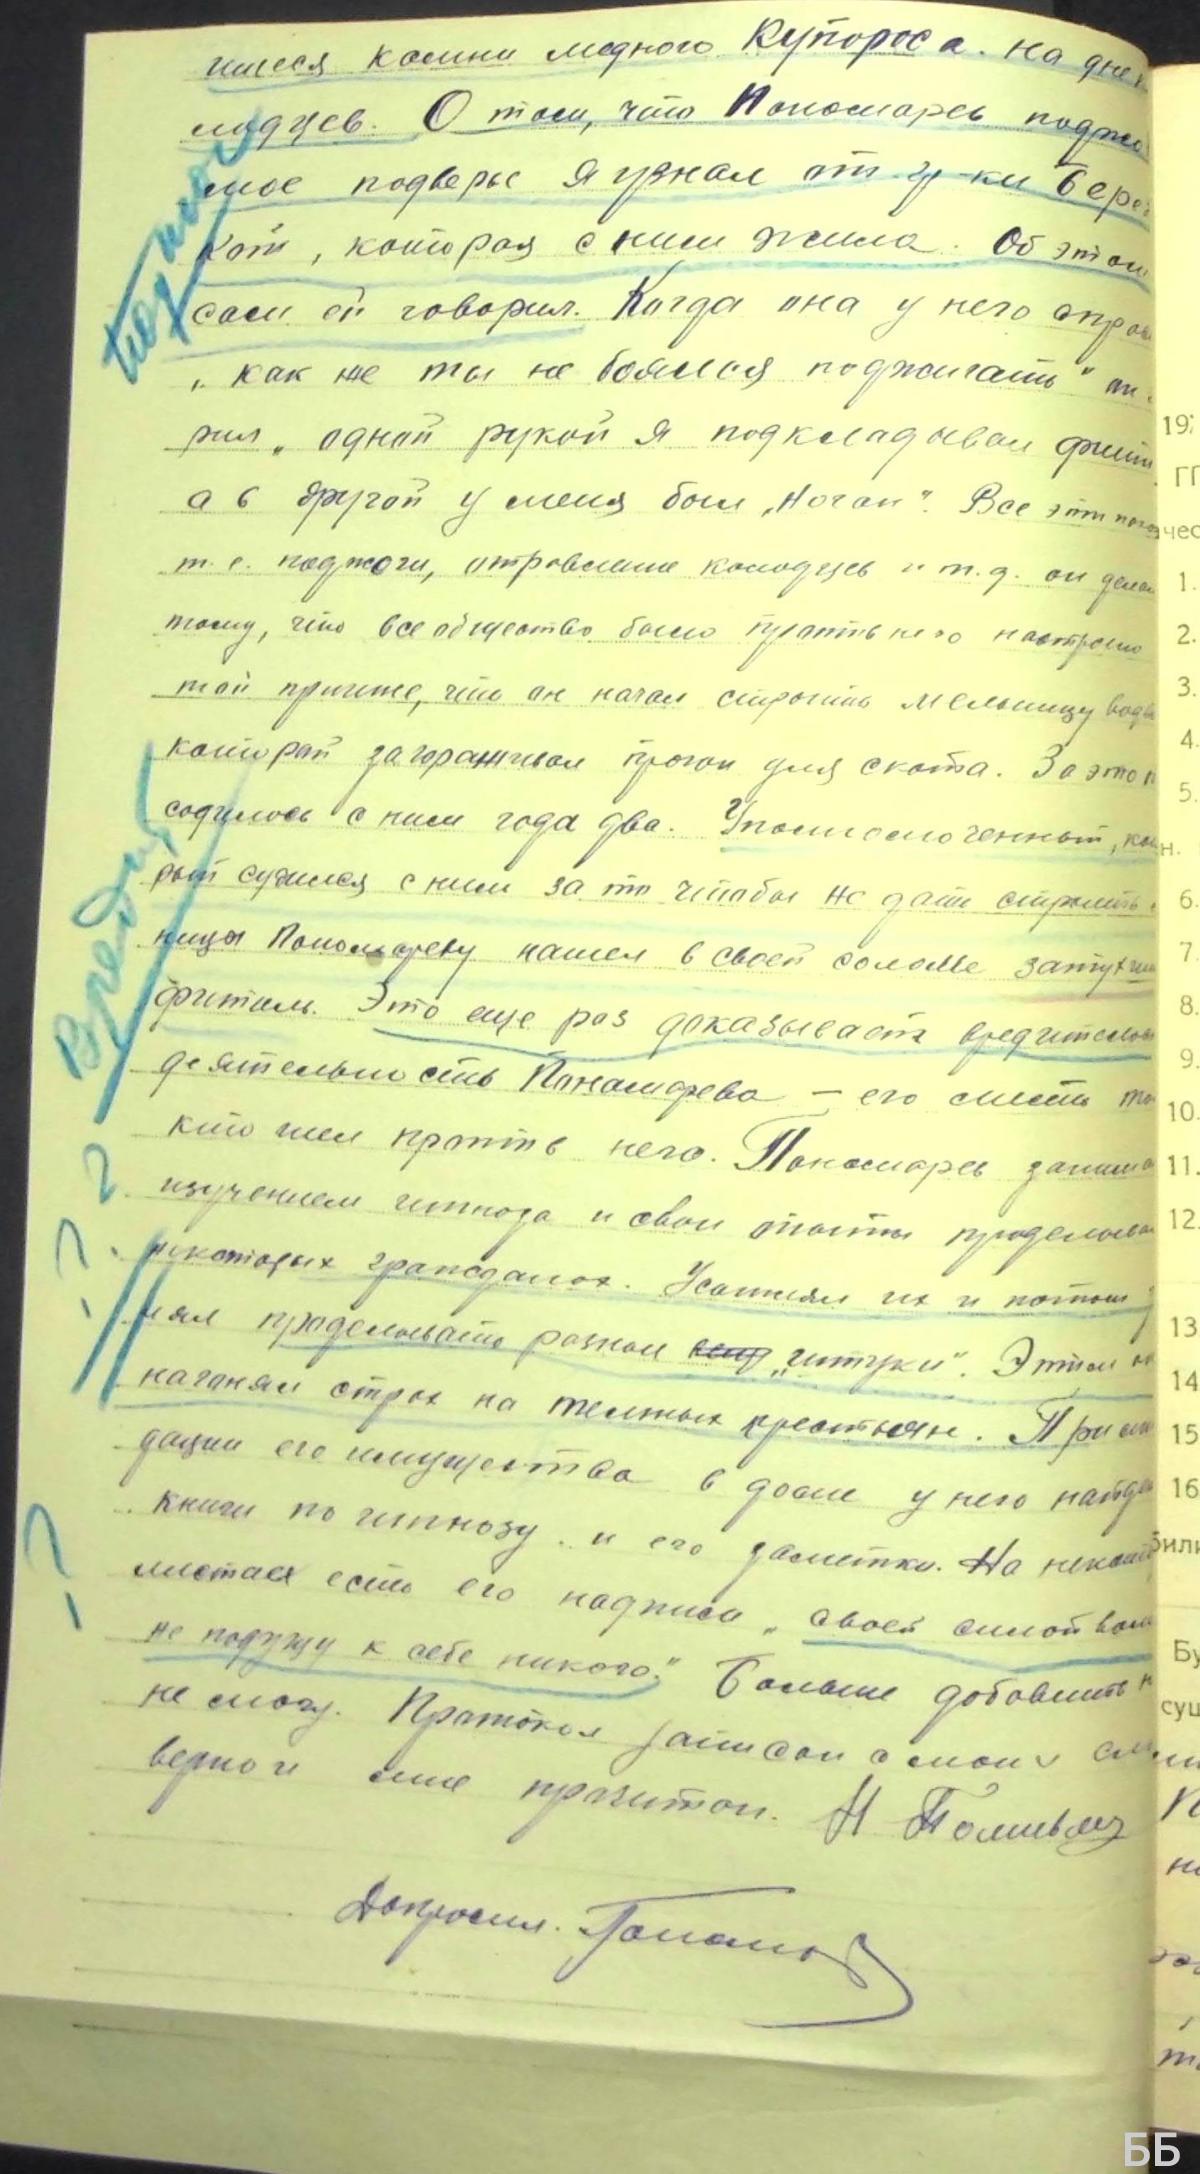 шиеся камни медного купороса. на дне к
лодцев. О том, что Пономарев поджо
мое подворье я узнал от гр-ки Берез
кой, которая с ним жила. Об этом
сам ей говорил. Когда она у него спрос
„как же ты не боялся поджигать" он
рил „одной рукой я подкладывал фити
а в другой у меня был „Наган". Все эти
т.е. поджоги, отравление колодцев и т.д. он делал
тому, что все общество было против него настроено
той причине, что он начал строить мельницу водя
которой загораживал прогон для скота. За это
содилось с ним года два. Уполномоченный, кот
рый судился с ним за то чтобы не дать строить
ницы Пономареву нашел в своей соломе затухши
фитиль. Это еще раз доказывает вредительск
деятельность Пономарева – его месть
кто шел против него. Пономарев занима
изучением гипноза и свои опыты проделывал
некоторых гражданах. Усыплял их и потом
нял проделывать разные „штуки". Этим он
нагонял страх на темных крестьян. При
дации его имущества в доме у него найде
книги по гипнозу и его заметки. На некото
листах есть его надписи „своей силой воли
не подпущу к себе никого." Больше добавить
не могу. Протокол записан с моих сл
верно и мне прочитан. Н
Допросил.
Поджог
Вредит
?
?
?
197
ГП
чес
1.
2.
3.
4.
5.
н.
6.
7.
8.
9.
10.
11.
12.
13
14
15
16
били
Бу
сущ
ББ